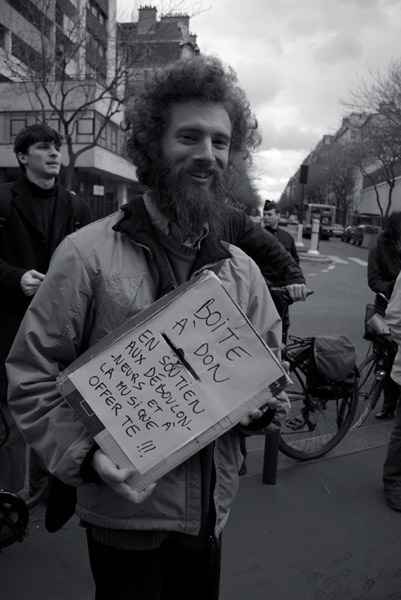 BOITE
À DON
EN SOUTIEN
AUX DÉBOULON-
NEURS ET À
LA MUSIQUE
OFFERTE !!!